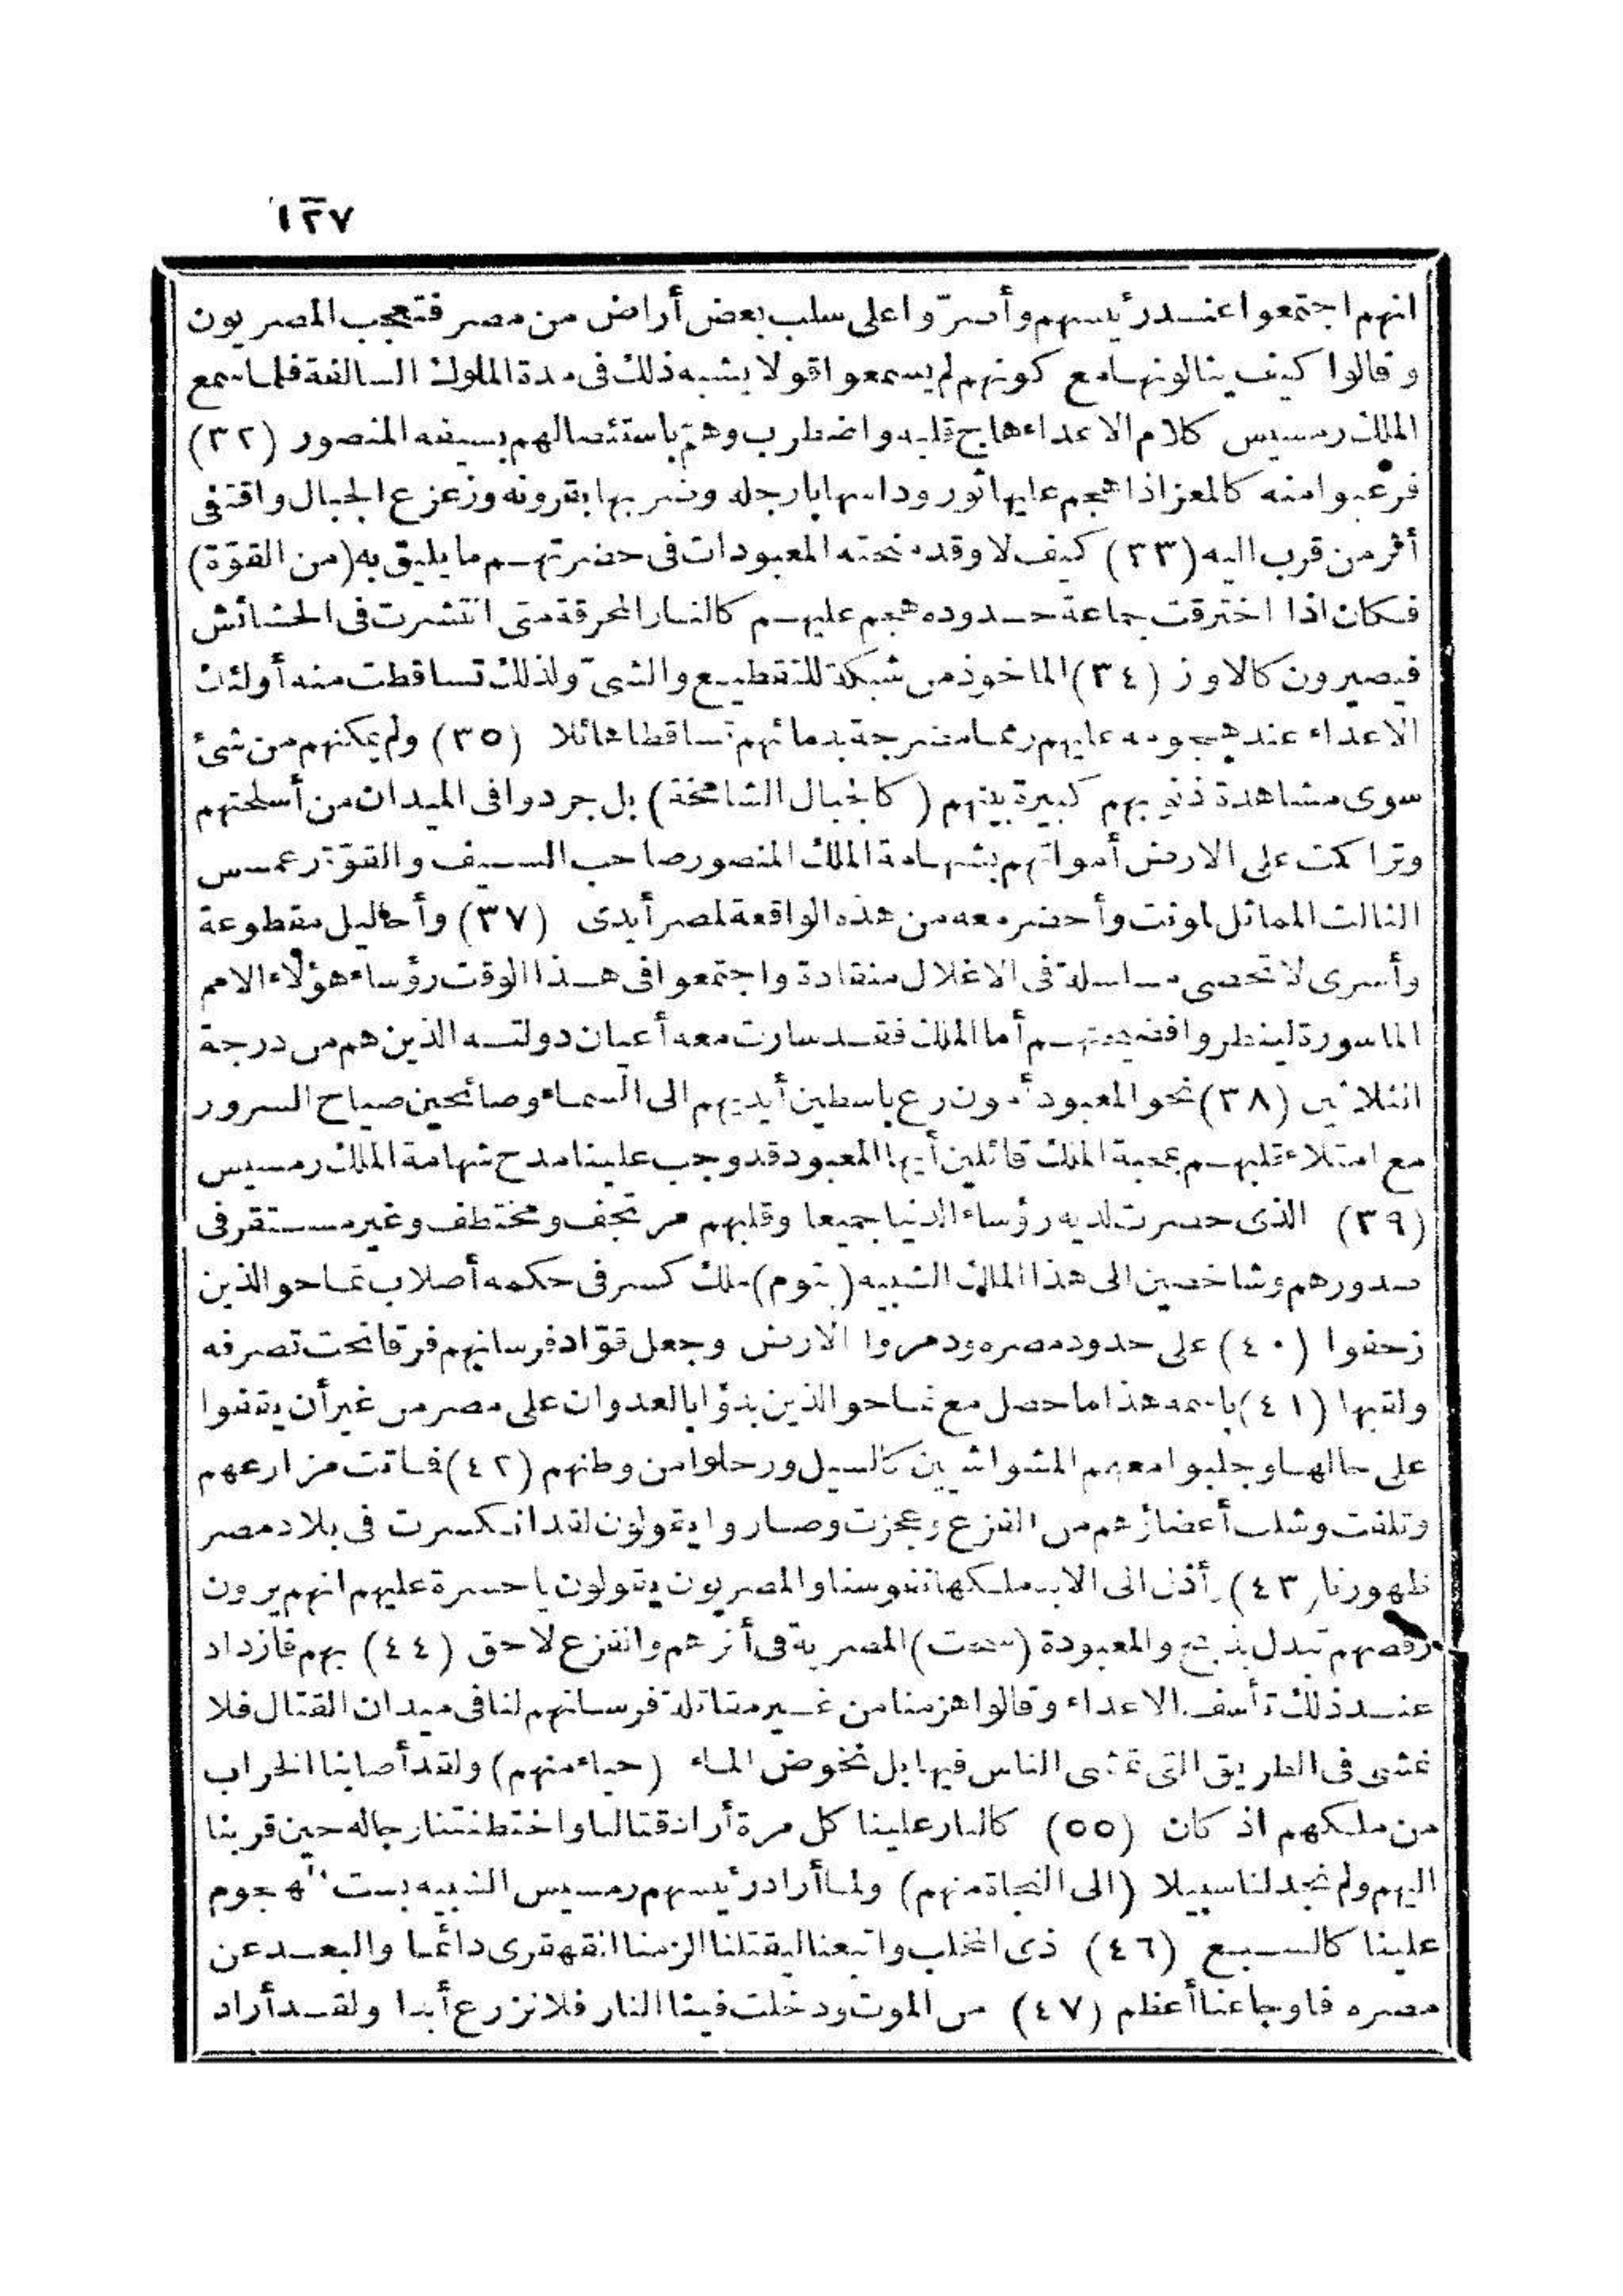 ١٢٧
انهم اجتمعوا عند رئيسهم وأصرّوا على سلب بعض أراض من مصر فتعجب المصريون
وقالوا كيف ينالونها مع كونهم لم يسمعوا قولا يشبه ذلك فى مدة الملوك السالفة فلما سمع
الملك رمسيس كلام الاعداء هاج قلبه واضطرب وهمّ باستئصالهم بسيفه المنصور (٣٢)
فرعبوا منه كالمعز اذا هجم عليها ثور وداسها بارجله وضربها بقرونه وزعزع الجبال واقتفى
أثر من قرب اليه (٣٣) كيف لا وقد منحته المعبودات فى حضرتهم ما يليق به (من القوّة)
فكان اذا اخترقت جماعة حدوده هجم عليهم كالنار المحرقة متى انتشرت فى الحشائش
فيصيرون كالاوز (٣٤) الماخوذ من شبكة للتقطيع والشىّ ولذلك تساقطت منه أولئك
الاعداء عند هجومه عليهم رمما مضرجة بدمائهم تساقطا هائلا (٣٥) ولم يمكنهم من شئ
سوى مشاهدة ذنوبهم كبيرة بينهم (كالجبال الشامخة) بل جردوا فى الميدان من أسلحتهم
وتراكمت على الارض أمواتهم بشهامة الملك المنصور صاحب السيف والقوّة رعمسس
الثالث المماثل لمونت وأحضر معه من هذه الواقعة لمصر أيدى (٣٧) وأحاليل مقطوعة
وأسرى لا تحصى مسلسلة فى الاغلال منقادة واجتمعوا فى هذا الوقت رؤساء هؤلاء الامم
الماسورة لينظروا فضيحتهم أما الملك فقد سارت معه أعيان دولته الذين هم من درجة
الثلاثين (٣٨) نحو المعبود أمون رع باسطين أيديهم الى السماء وصائحين صياح السرور
مع امتلاء قلبهم بمحبة الملك قائلين أيها المعبود قد وجب علينا مدح شهامة الملك رمسيس
(٣٩) الذى حضرت لديه رؤساء الدنيا جميعا وقلبهم مرتجف ومختطف وغير مستقر فى
صدورهم وشاخصين الى هذا الملك الشبيه (بتوم) ملك كسر فى حكمه أصلاب تماحو الذين
زحفوا (٤٠) على حدود مصره ودمروا الارض وجعل قوّاد فرسانهم فرقا تحت تصرفه
ولقبها (٤١) باسمه هذا ما حصل مع تماحو الذين بدؤا بالعدوان على مصر من غير أن يقفوا
على حالها وجلبوا معهم المشواشيين كالسيل ورحلوا من وطنهم (٤٢) فماتت مزارعهم
وتلفت وشلت أعضاؤهم من الفزع وعجزت وصاروا يقولون لقد انكسرت فى بلاد مصر
ظهورنا (٤٣) وأذل الى الابد ملكها نفوسنا والمصريون يقولون يا حسرة عليهم انهم يرون
رقصهم تبدل بذبح والمعبودة (سخت) المصرية فى أثرهم والفزع لاحق (٤٤) بهم فازداد
عند ذلك تأسف الاعداء وقالوا هزمنا من غير مقاتلة فرسانهم لنا فى ميدان القتال فلا
نمشى فى الطريق التى تمشى الناس فيها بل نخوض الماء (حياء منهم) ولقد أصابنا الخراب
من ملكهم اذ كان (٥٥) كالنار علينا كل مرة أراد قتالنا واختطفتنا رجاله حين قربنا
اليهم ولم نجد لنا سبيلا (الى النجاة منهم) ولما أراد رئيسهم رمسيس الشبيه بست الهجوم
علينا كالسبع (٤٦) ذى المخلب واتبعنا ليقتلنا الزمنا القهقرى دائما والبعد عن
مصره فاوجاعنا أعظم (٤٧) من الموت ودخلت فينا النار فلا نزرع أبدا ولقد أراد